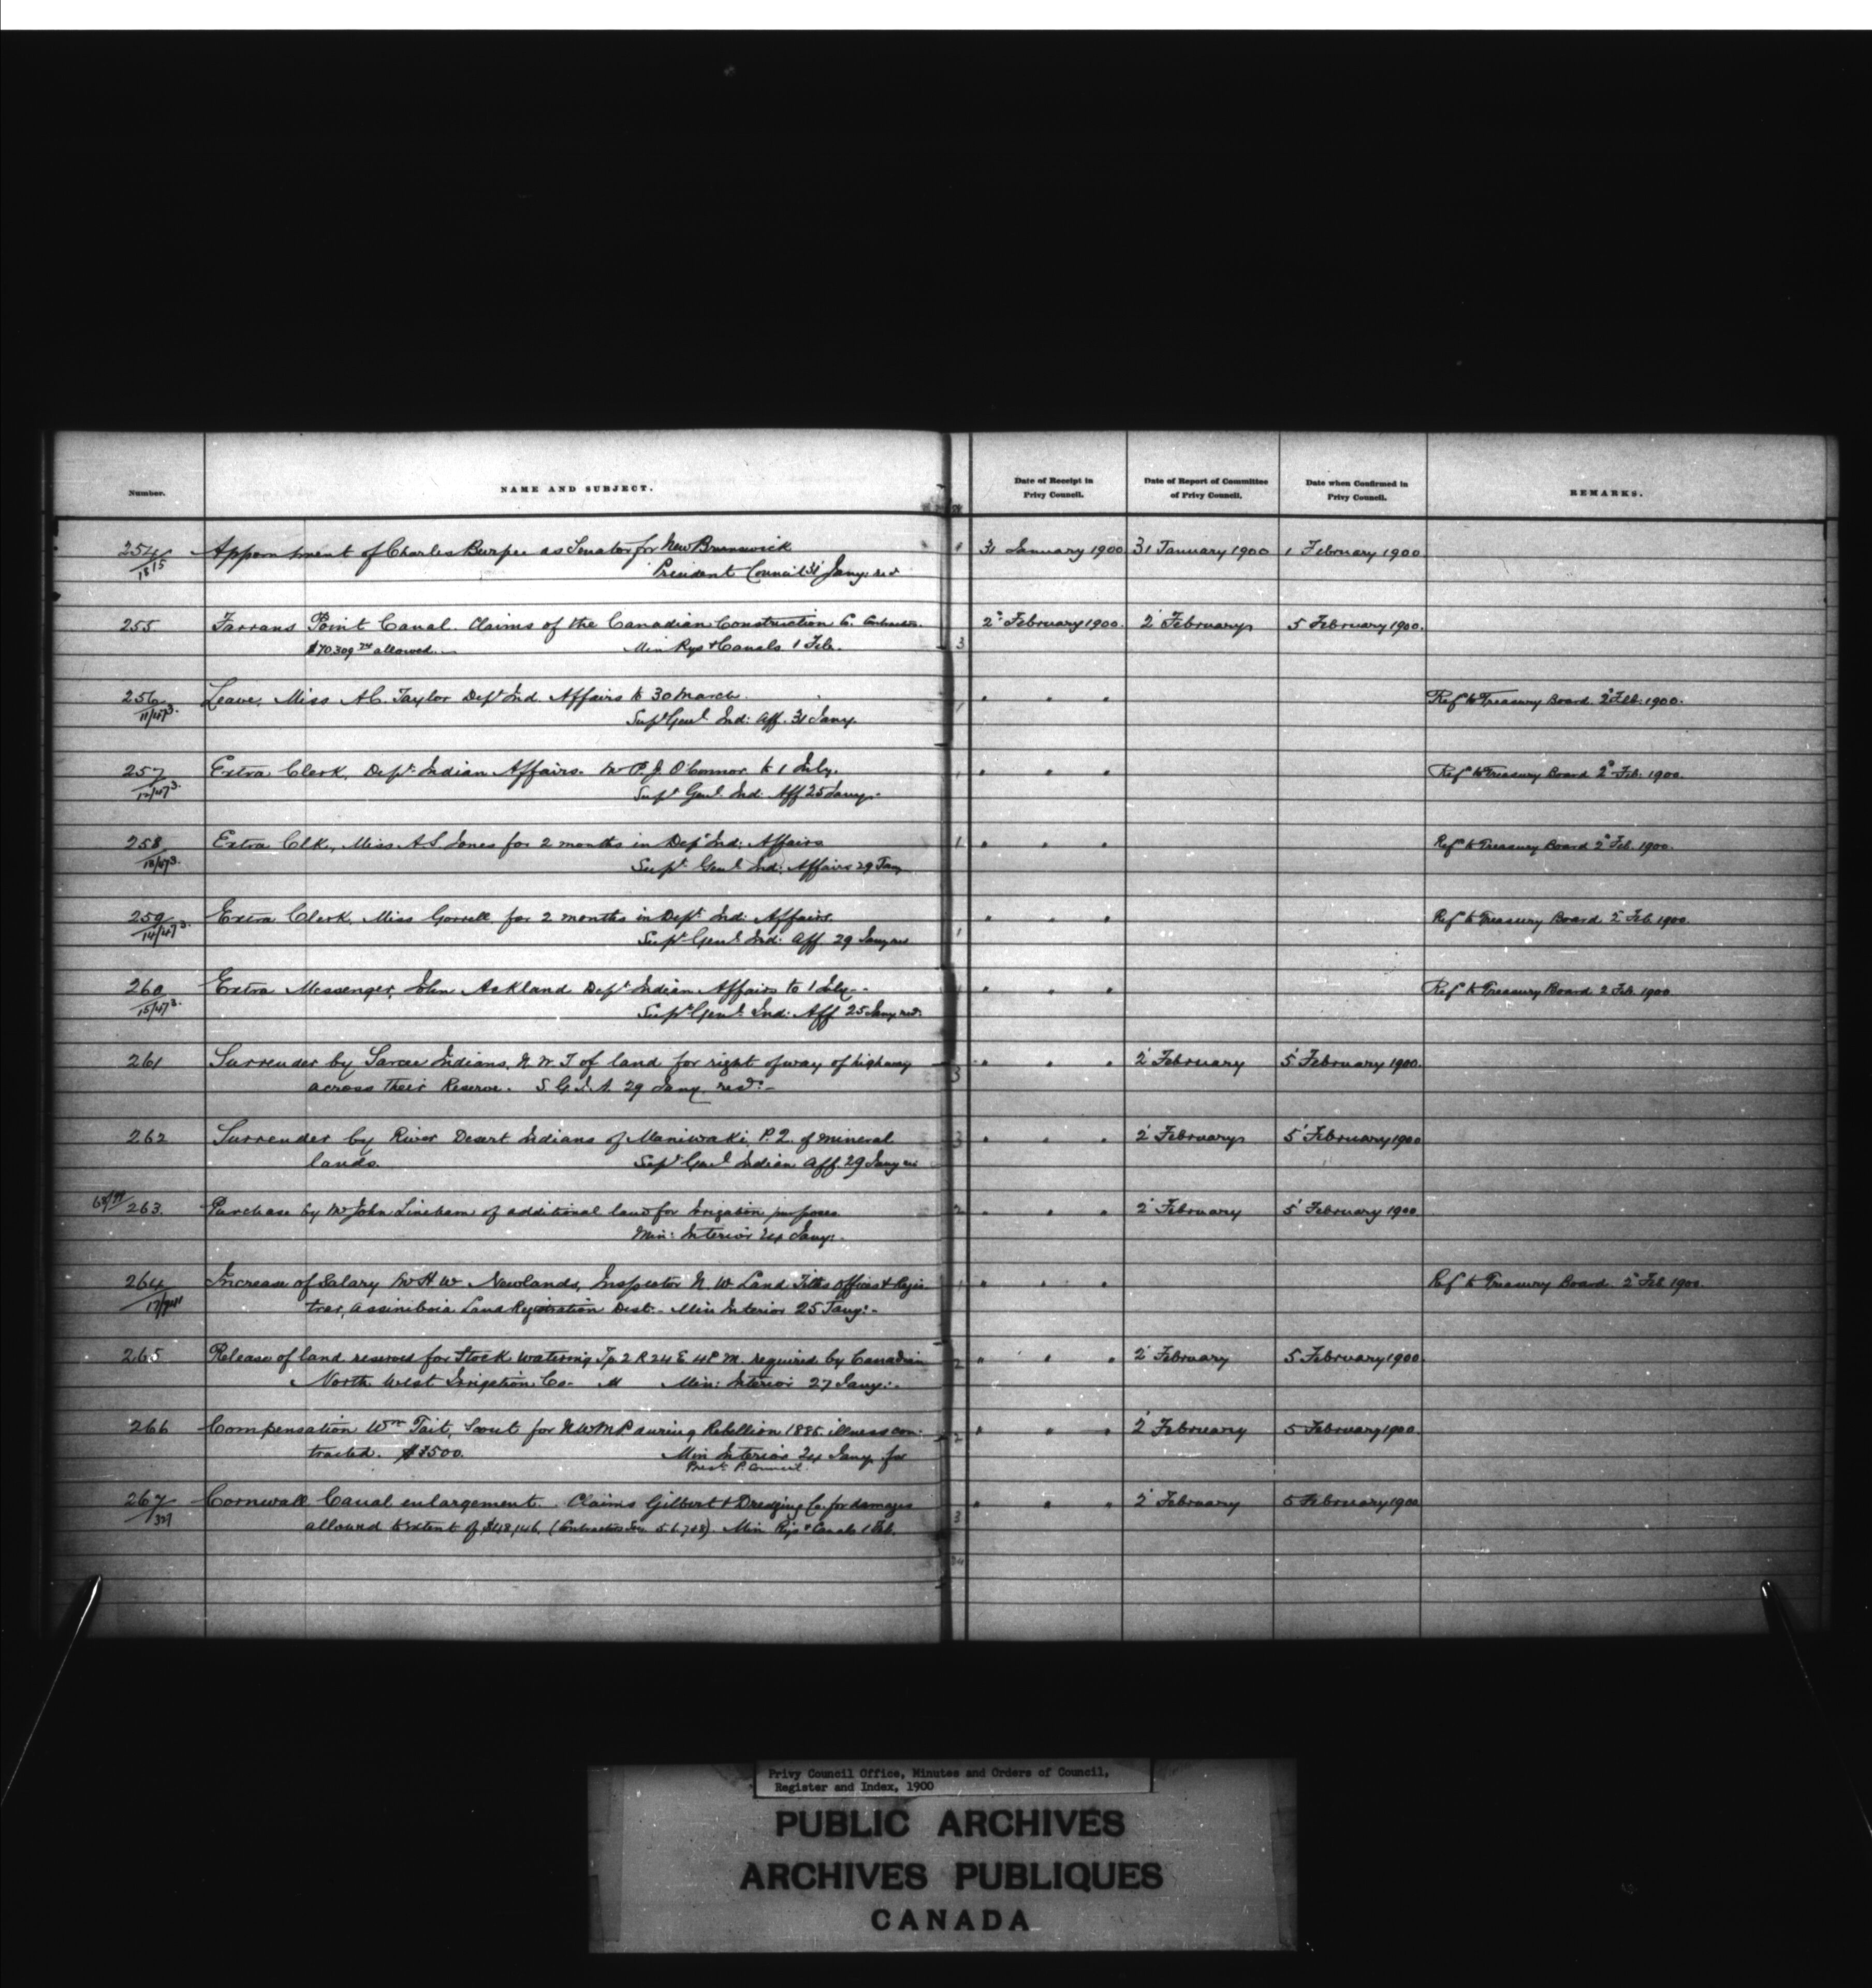 Number. NAME AND SUBJECT. Date of Receipt in Privy Council. Date of Report of Committee of Privy Council. Date when Confirmed in Privy Council. REMARKS.
254 Appointment of Charles Burpee as Senator for New Brunswick 1 31 January 1900 31 January 1900 1 February 1900
1815 President Council 31 Jany: recd
255 Farrans Point Canal. Claims of the Canadian Construction Co. Contractors. 2 February 1900. 2 February 5 February 1900.
$70.309 allowed. Min Rys & Canals 1 Feb. 3
256 Leave, Miss A.C. Taylor Dept Ind. Affairs to 30 March. " " " Ref to Treasury Board 2 Feb. 1900.
11/473. Supt Genl Ind: Aff. 31 Jany.
257 Extra Clerk, Dept Indian Affairs. Mr P.J. O'Connor to 1 July. " " " Ref to Treasury Board 2 Feb. 1900.
12/473. Supt Genl Ind: Aff 25 Jany.
258 Extra Clk, Miss A.S. Jones for 2 months in Dept Ind: Affairs 1 " " " Ref to Treasury Board 2 Feb. 1900.
13/473. Supt Genl Ind: Affairs 29 Jan
259 Extra Clerk Miss Gorrell for 2 months in Dept Ind: Affairs. " " " Ref to Treasury Board 2 Feb 1900.
14/473. Supt Genl Ind: Aff 29 Jany recd 1
260 Extra Messenger, John Ackland Dept Indian Affairs to 1 July - " " " Ref to Treasury Board 2 Feb. 1900
15/473. Supt Genl Ind: Aff 25 Jany recd:
261 Surrender by Sarcee Indians, N.W.T of land for right of way of highway " " " 2 February 5 February 1900.
across their Reserve. S.G.I.A. 29 Jany. recd:- 3
262 Surrender by River Desert Indians of Maniwaki, P.Q. of mineral 3 " " " 2 February 5 February 1900
lands. Supt Genl Indian Aff 29 Jany
263. Purchase by Mr John Lineham of additional land for Irrigation purposes 2 " " " 2 February 5 February 1900.
Min: Interior 24 Jany:-
264 Increase of Salary Mr H W Newlands, Inspector N.W. Land Titles Offices & Regis 1 " " " Ref to Treasury Board. 2 Feb 1900.
trar, Assiniboia Land Registration Dist.- Min Interior 25 Jany:-
265 Release of land reserved for Stock watering Tp 2 R 24 E 4 P.M. required by Canadian 2 " " " 2 February 5 February 1900
North West Irrigation Co- Min: Interior 27 Jany:-
266 Compensation Wm Tait, Scout for NWMP during Rebellion 1885. illness con- " " " 2 February 5 February 1900.
tracted. $3500. Min Interior 24 Jany. for 2
Prest P. Council.
267 Cornwall Canal enlargement. Claims Gilbert & Dredging Co. for damages " " " 2 February 5 February 1900
allowed to extent of Min Rys & Canals 1 Feb. 3
Privy Council Office, Minutes and Orders of Council,
Register and Index, 1900
PUBLIC ARCHIVES
ARCHIVES PUBLIQUES
CANADA